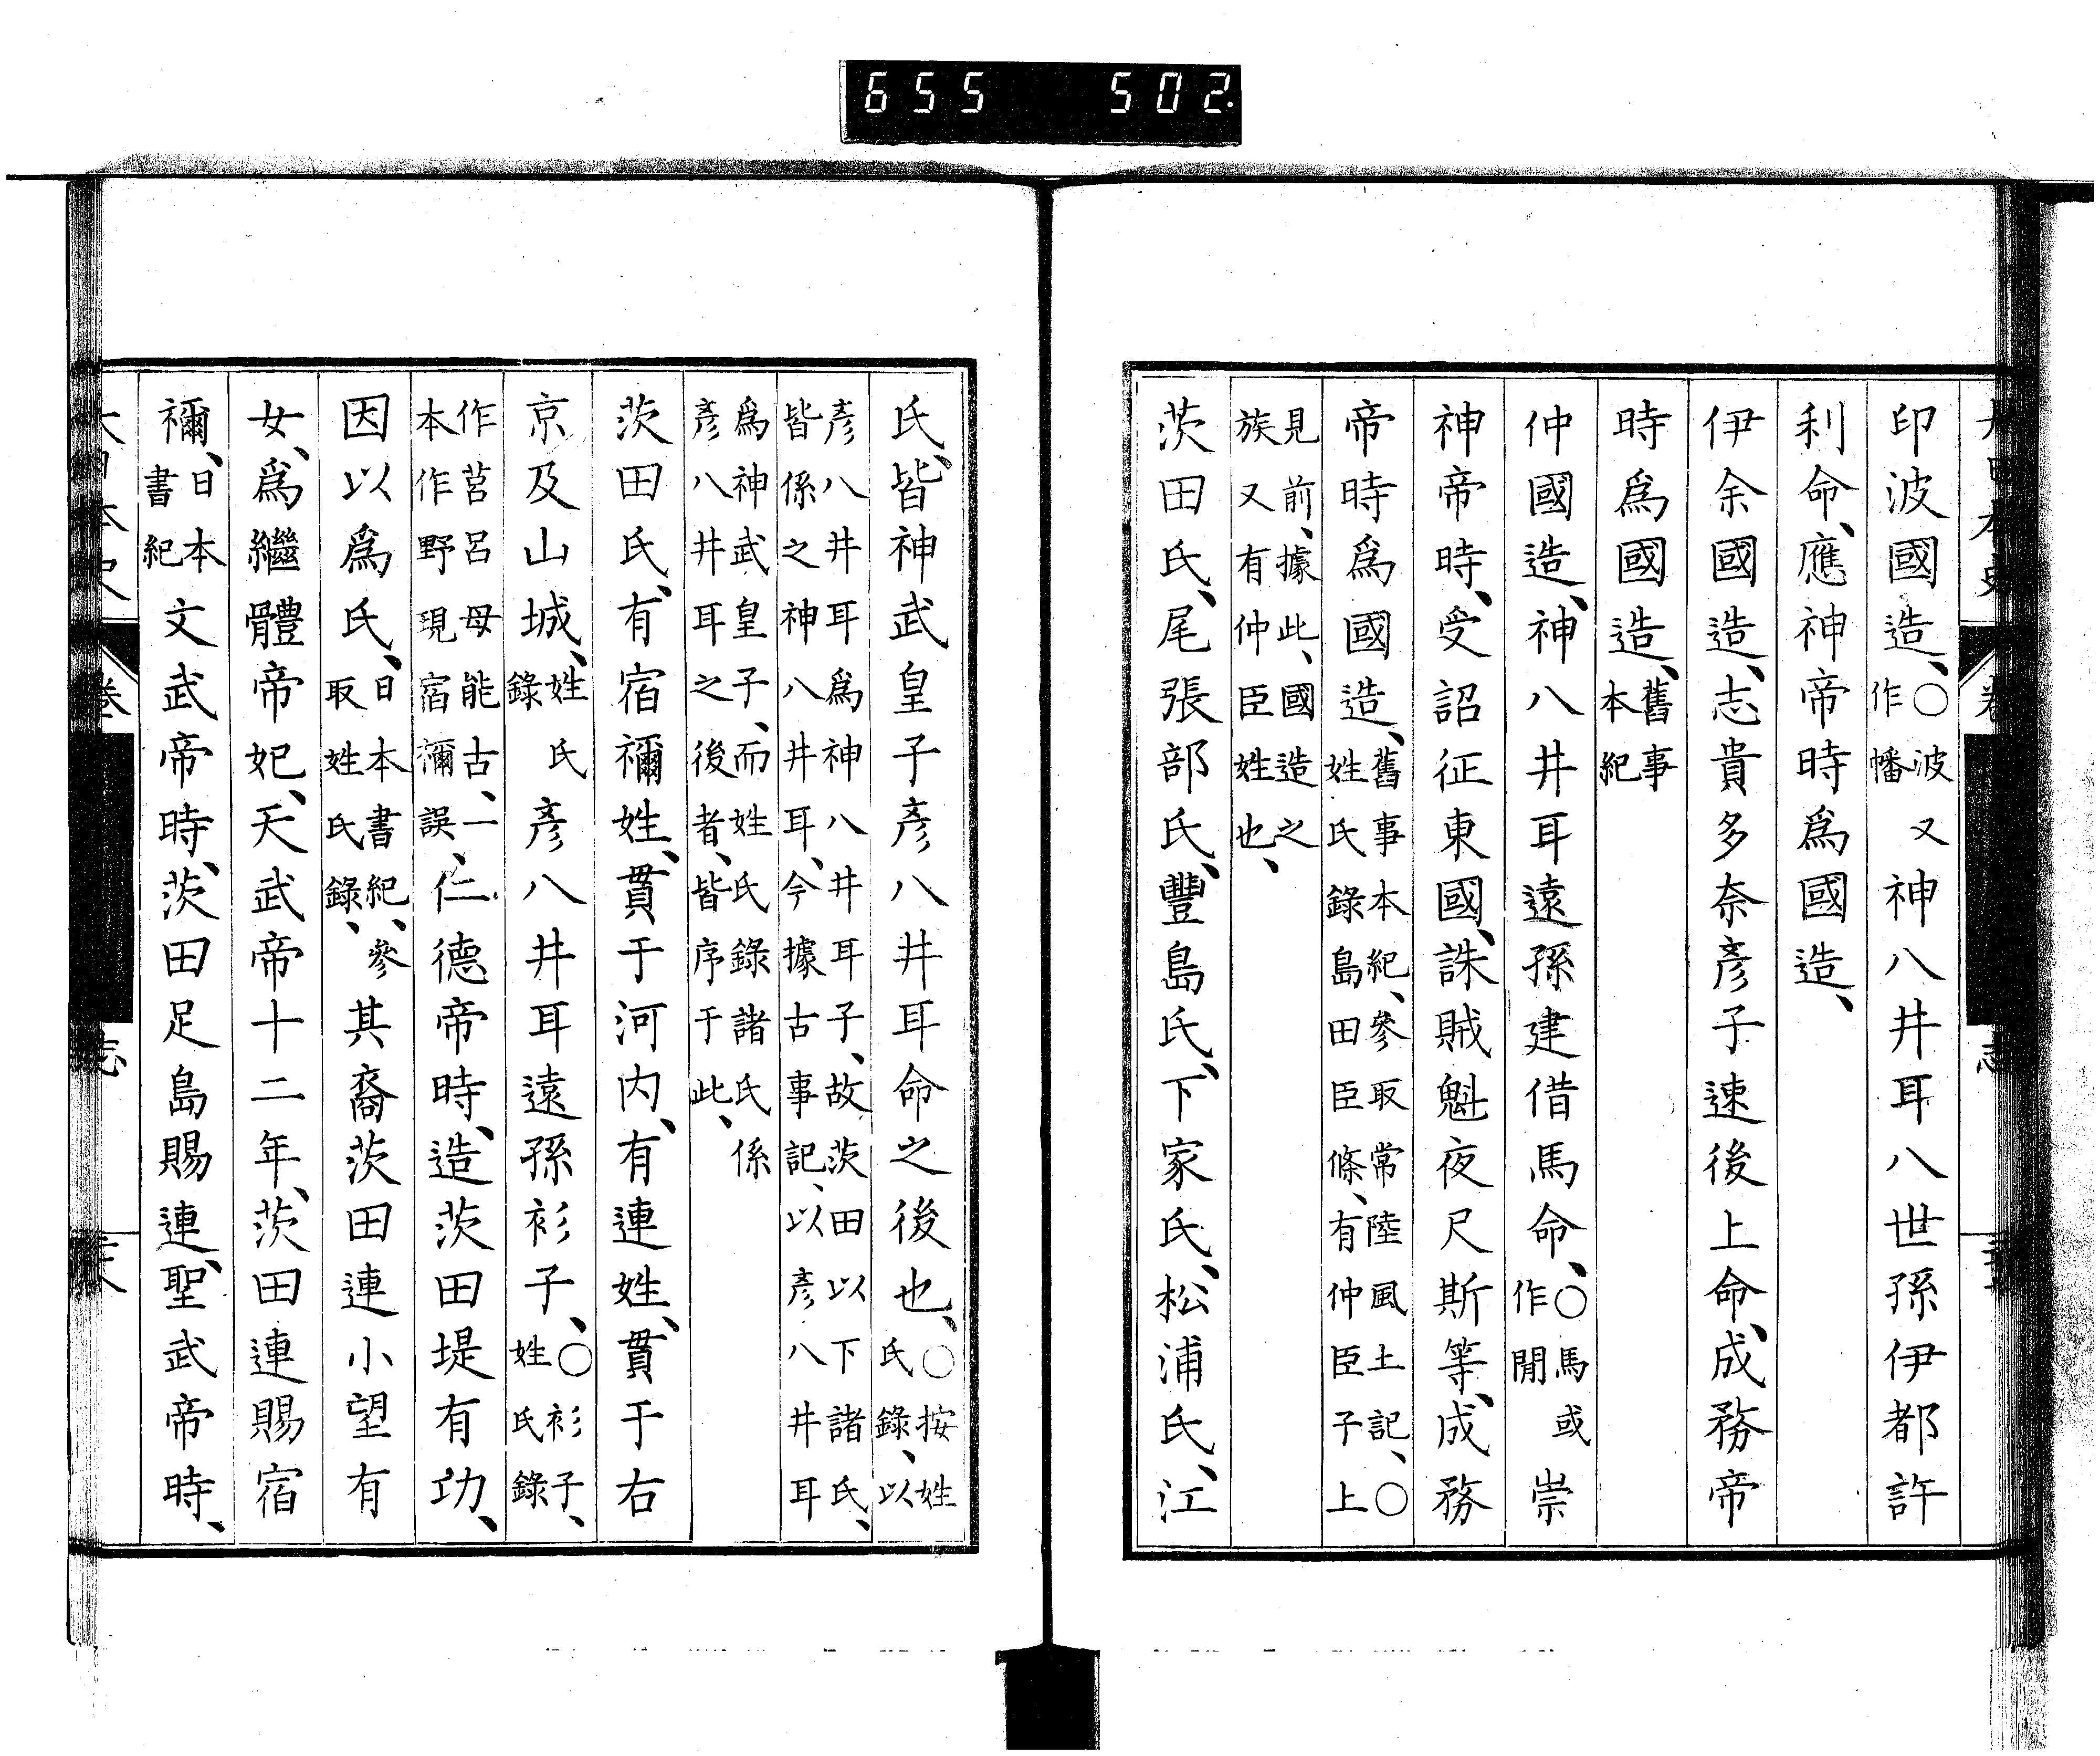 655 502.
印波國造、○波又作幡神八井耳八世孫伊都許
利命、應神帝時爲國造、
伊余國造、志貴多奈彥子速後上命、成務帝
時爲國造、舊事本紀
仲國造、神八井耳遠孫建借馬命、○馬或作閒崇
神帝時、受詔征東國、誅賊魁夜尺斯等、成務
帝時爲國造、舊事本紀、參取常陸風土記、○姓氏錄島田臣條、有仲臣子上
見前、據此、國造之族又有仲臣姓也、
茨田氏、尾張部氏、豐島氏、下家氏、松浦氏、江
氏、皆神武皇子彥八井耳命之後也、○按姓氏錄、以
彥八井耳爲神八井耳子、故茨田以下諸氏、皆係之神八井耳、今據古事記、以彥八井耳
爲神武皇子、而姓氏錄諸氏係彥八井耳之後者、皆序于此、
茨田氏、有宿禰姓、貫于河內、有連姓、貫于右
京及山城、姓氏錄彥八井耳遠孫衫子、○衫子、姓氏錄
作莒呂母能古、一本作野現宿禰、誤、仁德帝時、造茨田堤有功、
因以爲氏、日本書紀、參取姓氏錄、其裔茨田連小望有
女、爲繼體帝妃、天武帝十二年、茨田連賜宿
禰、日本書紀文武帝時、茨田足島賜連、聖武帝時、